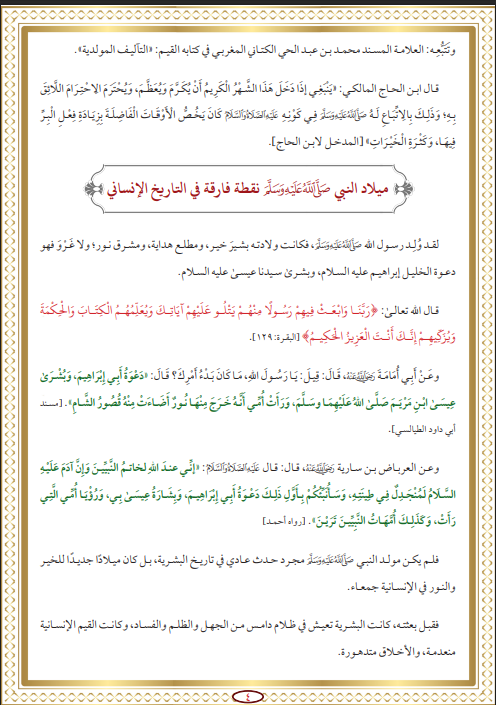 وتَتَبُّعِه: العلامة المسند محمد بن عبد الحي الكتاني المغربي في كتابه القيم: «التآليف المولدية».
قال ابن الحاج المالكي: «يَنْبَغِي إِذَا دَخَلَ هَذَا الشَّهْرُ الْكَرِيمُ أَنْ يُكَرَّمَ وَيُعَظَّمَ، وَيُحْتَرَمَ الِاحْتِرَامَ اللَّائِقَ
بِهِ؛ وَذَلِكَ بِالِاتِّبَاعِ لَهُ ﷺ فِي كَوْنِهِ عَلَيْهِ الصَّلَاةُ وَالسَّلَامُ كَانَ يَخُصُّ الْأَوْقَاتَ الْفَاضِلَةَ بِزِيَادَةِ فِعْلِ الْبِرِّ
فِيهَا، وَكَثْرَةِ الْخَيْرَاتِ» [المدخل لابن الحاج].
ميلاد النبي ﷺ نقطة فارقة في التاريخ الإنساني
لقد وُلِد رسول الله ﷺ، فكانت ولادته بشيرَ خير، ومطلع هداية، ومشرق نور؛ ولا غَرْوَ فهو
دعوة الخليل إبراهيم عليه السلام، وبشرىٰ سيدنا عيسىٰ عليه السلام.
قال الله تعالىٰ: ﴿رَبَّنَا وَابْعَثْ فِيهِمْ رَسُولًا مِنْهُمْ يَتْلُو عَلَيْهِمْ آيَاتِكَ وَيُعَلِّمُهُمُ الْكِتَابَ وَالْحِكْمَةَ
وَيُزَكِّيهِمْ إِنَّكَ أَنْتَ الْعَزِيزُ الْحَكِيمُ﴾ [البقرة: ١٢٩].
وعَنْ أَبِي أُمَامَةَ رَضِيَ اللَّهُ عَنْهُ، قَالَ: قِيلَ: يَا رَسُولَ اللهِ، مَا كَانَ بَدْءُ أَمْرِكَ؟ قَالَ: «دَعْوَةُ أَبِي إِبْرَاهِيمَ، وَبُشْرَىٰ
عِيسَىٰ ابْنِ مَرْيَمَ صَلَّىٰ اللهُ عَلَيْهِمَا وسَلَّمَ، وَرَأَتْ أُمِّي أَنَّهُ خَرَجَ مِنْهَا نُورٌ أَضَاءَتْ مِنْهُ قُصُورُ الشَّامِ». [مسند
أبي داود الطيالسي].
وعن العرباض بن سارية رَضِيَ اللَّهُ عَنْهُ، قال: قال عَلَيْهِ الصَّلَاةُ وَالسَّلَامُ: «إِنِّي عندَ اللهِ لخاتمُ النَّبِيِّينَ وَإِنَّ آدَمَ عَلَيْهِ
السَّلامُ لَمُنْجَدِلٌ فِي طِينَتِهِ، وَسَأُنَبِّئُكُمْ بِأَوَّلِ ذَلِكَ دَعْوَةُ أَبِي إِبْرَاهِيمَ، وَبِشَارَةُ عِيسَىٰ بِي، وَرُؤْيَا أُمِّي الَّتِي
رَأَتْ، وَكَذَلِكَ أُمَّهَاتُ النَّبِيِّينَ تَرَيْنَ». [رواه أحمد]
فلم يكن مولد النبي ﷺ مجرد حدث عادي في تاريخ البشرية، بل كان ميلادًا جديدًا للخير
والنور في الإنسانية جمعاء.
فقبل بعثته، كانت البشرية تعيش في ظلام دامس من الجهل والظلم والفساد، وكانت القيم الإنسانية
منعدمة، والأخلاق متدهورة.
٤